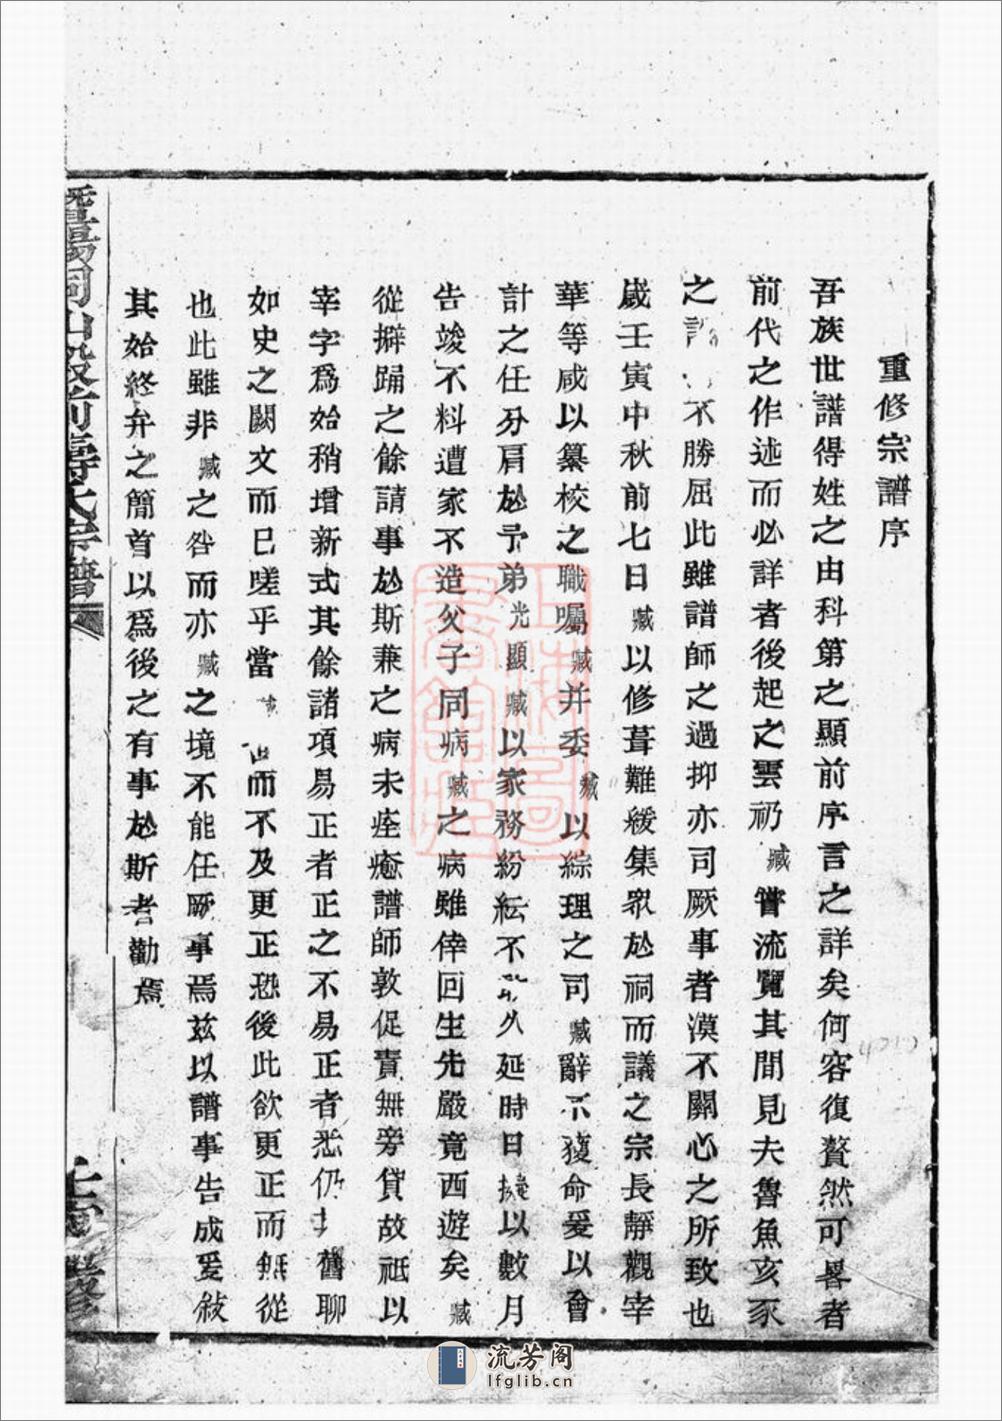 重修宗譜序
吾族世譜得姓之由科第之顯前序言之詳矣何容復贅然可畧者
前代之作述而必詳者後起之雲礽臧嘗流覽其間見夫魯魚亥豕
之不勝屈此雖譜師之過抑亦司厥事者漠不關心之所致也
歲壬寅中秋前七日臧以修葺難緩集衆於祠而議之宗長靜觀宰
華等咸以纂校之職囑臧并委臧以綜理之司臧辭不獲命爰以會
計之任分肩於予弟光顯臧以家務紛紜不久延時日擬以數月
告竣不料遭家不造父子同病臧之病雖倖回生先嚴竟西遊矣臧
從擗踊之餘請事於斯兼之病未痊癒譜師敦促責無旁貸故祗以
宰字爲始稍增新式其餘諸項易正者正之不易正者悉仍舊聊
如史之闕文而已嗟乎當而不及更正恐後此欲更正而無從
也此雖非臧之咎而亦臧之境不能任厥事焉茲以譜事告成爰敍
其始終弁之簡首以爲後之有事於斯者勸焉
暨陽同山殿前壽氏宗譜
上海圖書館藏
流芳阁
lfglib.cn